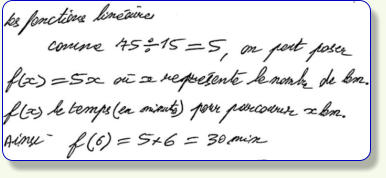 Les fonctions linéaires
comme 75÷15=5, on peut poser
f(x)=5x où x représente le nombre de km.
f(x) le temps (en minute) pour parcourir x km.
Ainsi f(6) = 5×6 = 30 min